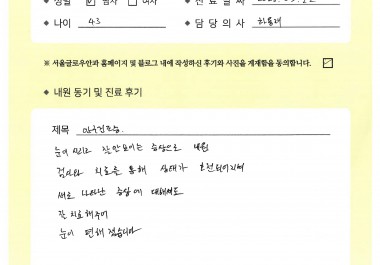 ◆ 성별 ☑ 남자 □ 여자
◆ 진료날짜
◆ 나이 43
◆ 담당의사
※ 서울글로우안과 홈페이지 및 블로그 내에 작성하신 후기와 사진을 게재함을 동의합니다. ☑
◆ 내원 동기 및 진료 후기
제목 안구건조증.
눈이 시리고 잘 안보이는 증상으로 내원
검사와 치료를 통해 상태가 호전되어지며
새로 나타난 증상에 대해서도
잘 치료해주어
눈이 편해졌습니다